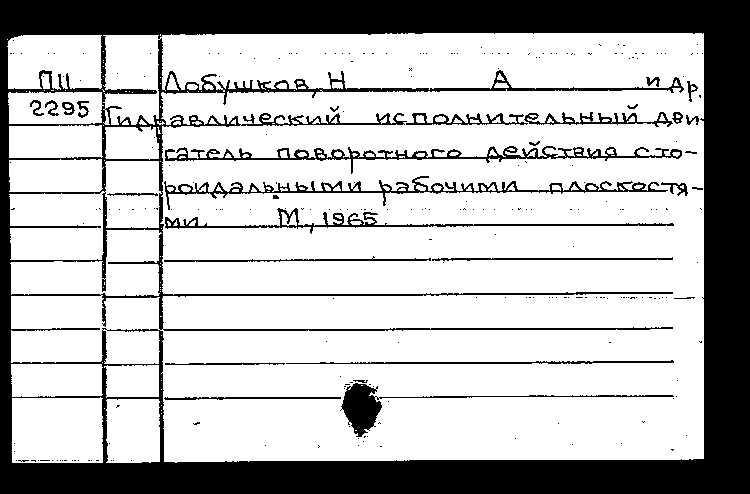 ПII Лобушков, Н А и др.
2295 Гидравлический исполнительный дви-
гатель поворотного действия с то-
роидальными рабочими плоскостя-
ми. М., 1965.